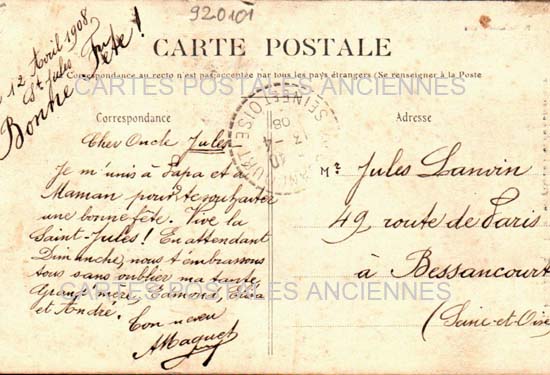 920101
12 Avril 1908.
St Jules
Bonne Fête!
CARTE POSTALE
Correspondance au recto n'est pas acceptée par tous les pays étrangers (Se renseigner à la Poste
CARTES POSTALES ANCIENNES
Correspondance
Adresse
SEINE-ET-OISE
Cher Oncle Jules
Je m'unis à Papa et à
Maman pour te souhaiter
une bonne fête. Vive la
Saint-Jules! En attendant
Dimanche, nous t'embrassons
tous sans oublier ma tante,
Grand'mère, Edmond,
et André.
Ton neveu
AMaguet
Mr Jules Lanvin
49 route de Paris
à Bessancourt
(Seine-et-Oise
CARTES POSTALES ANCIENNES